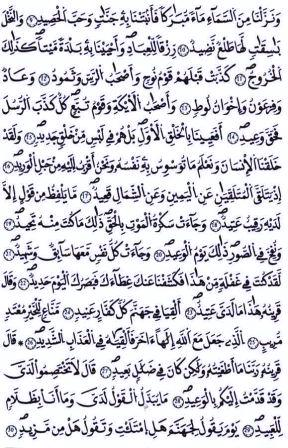 وَنَزَّلْنَا مِنَ السَّمَاءِ مَاءً مُّبَارَكًا فَأَنبَتْنَا بِهِ جَنَّاتٍ وَحَبَّ الْحَصِيدِ ٩ وَالنَّخْلَ
بَاسِقَاتٍ لَّهَا طَلْعٌ نَّضِيدٌ ١٠ رِّزْقًا لِّلْعِبَادِ وَأَحْيَيْنَا بِهِ بَلْدَةً مَّيْتًا كَذَلِكَ
الْخُرُوجُ ١١ كَذَّبَتْ قَبْلَهُمْ قَوْمُ نُوحٍ وَأَصْحَابُ الرَّسِّ وَثَمُودُ ١٢ وَعَادٌ
وَفِرْعَوْنُ وَإِخْوَانُ لُوطٍ ١٣ وَأَصْحَابُ الْأَيْكَةِ وَقَوْمُ تُبَّعٍ كُلٌّ كَذَّبَ الرُّسُلَ
فَحَقَّ وَعِيدِ ١٤ أَفَعَيِينَا بِالْخَلْقِ الْأَوَّلِ بَلْ هُمْ فِي لَبْسٍ مِّنْ خَلْقٍ جَدِيدٍ ١٥ وَلَقَدْ
خَلَقْنَا الْإِنسَانَ وَنَعْلَمُ مَا تُوَسْوِسُ بِهِ نَفْسُهُ وَنَحْنُ أَقْرَبُ إِلَيْهِ مِنْ حَبْلِ الْوَرِيدِ ١٦
إِذْ يَتَلَقَّى الْمُتَلَقِّيَانِ عَنِ الْيَمِينِ وَعَنِ الشِّمَالِ قَعِيدٌ ١٧ مَّا يَلْفِظُ مِن قَوْلٍ إِلَّا
لَدَيْهِ رَقِيبٌ عَتِيدٌ ١٨ وَجَاءَتْ سَكْرَةُ الْمَوْتِ بِالْحَقِّ ذَلِكَ مَا كُنتَ مِنْهُ تَحِيدُ ١٩
وَنُفِخَ فِي الصُّورِ ذَلِكَ يَوْمُ الْوَعِيدِ ٢٠ وَجَاءَتْ كُلُّ نَفْسٍ مَّعَهَا سَائِقٌ وَشَهِيدٌ ٢١
لَّقَدْ كُنتَ فِي غَفْلَةٍ مِّنْ هَذَا فَكَشَفْنَا عَنكَ غِطَاءَكَ فَبَصَرُكَ الْيَوْمَ حَدِيدٌ ٢٢ وَقَالَ
قَرِينُهُ هَذَا مَا لَدَيَّ عَتِيدٌ ٢٣ أَلْقِيَا فِي جَهَنَّمَ كُلَّ كَفَّارٍ عَنِيدٍ ٢٤ مَّنَّاعٍ لِّلْخَيْرِ مُعْتَدٍ
مُّرِيبٍ ٢٥ الَّذِي جَعَلَ مَعَ اللَّهِ إِلَهًا آخَرَ فَأَلْقِيَاهُ فِي الْعَذَابِ الشَّدِيدِ ٢٦ قَالَ
قَرِينُهُ رَبَّنَا مَا أَطْغَيْتُهُ وَلَكِن كَانَ فِي ضَلَالٍ بَعِيدٍ ٢٧ قَالَ لَا تَخْتَصِمُوا لَدَيَّ
وَقَدْ قَدَّمْتُ إِلَيْكُم بِالْوَعِيدِ ٢٨ مَا يُبَدَّلُ الْقَوْلُ لَدَيَّ وَمَا أَنَا بِظَلَّامٍ
لِّلْعَبِيدِ ٢٩ يَوْمَ نَقُولُ لِجَهَنَّمَ هَلِ امْتَلَأْتِ وَتَقُولُ هَلْ مِن مَّزِيدٍ ٣٠